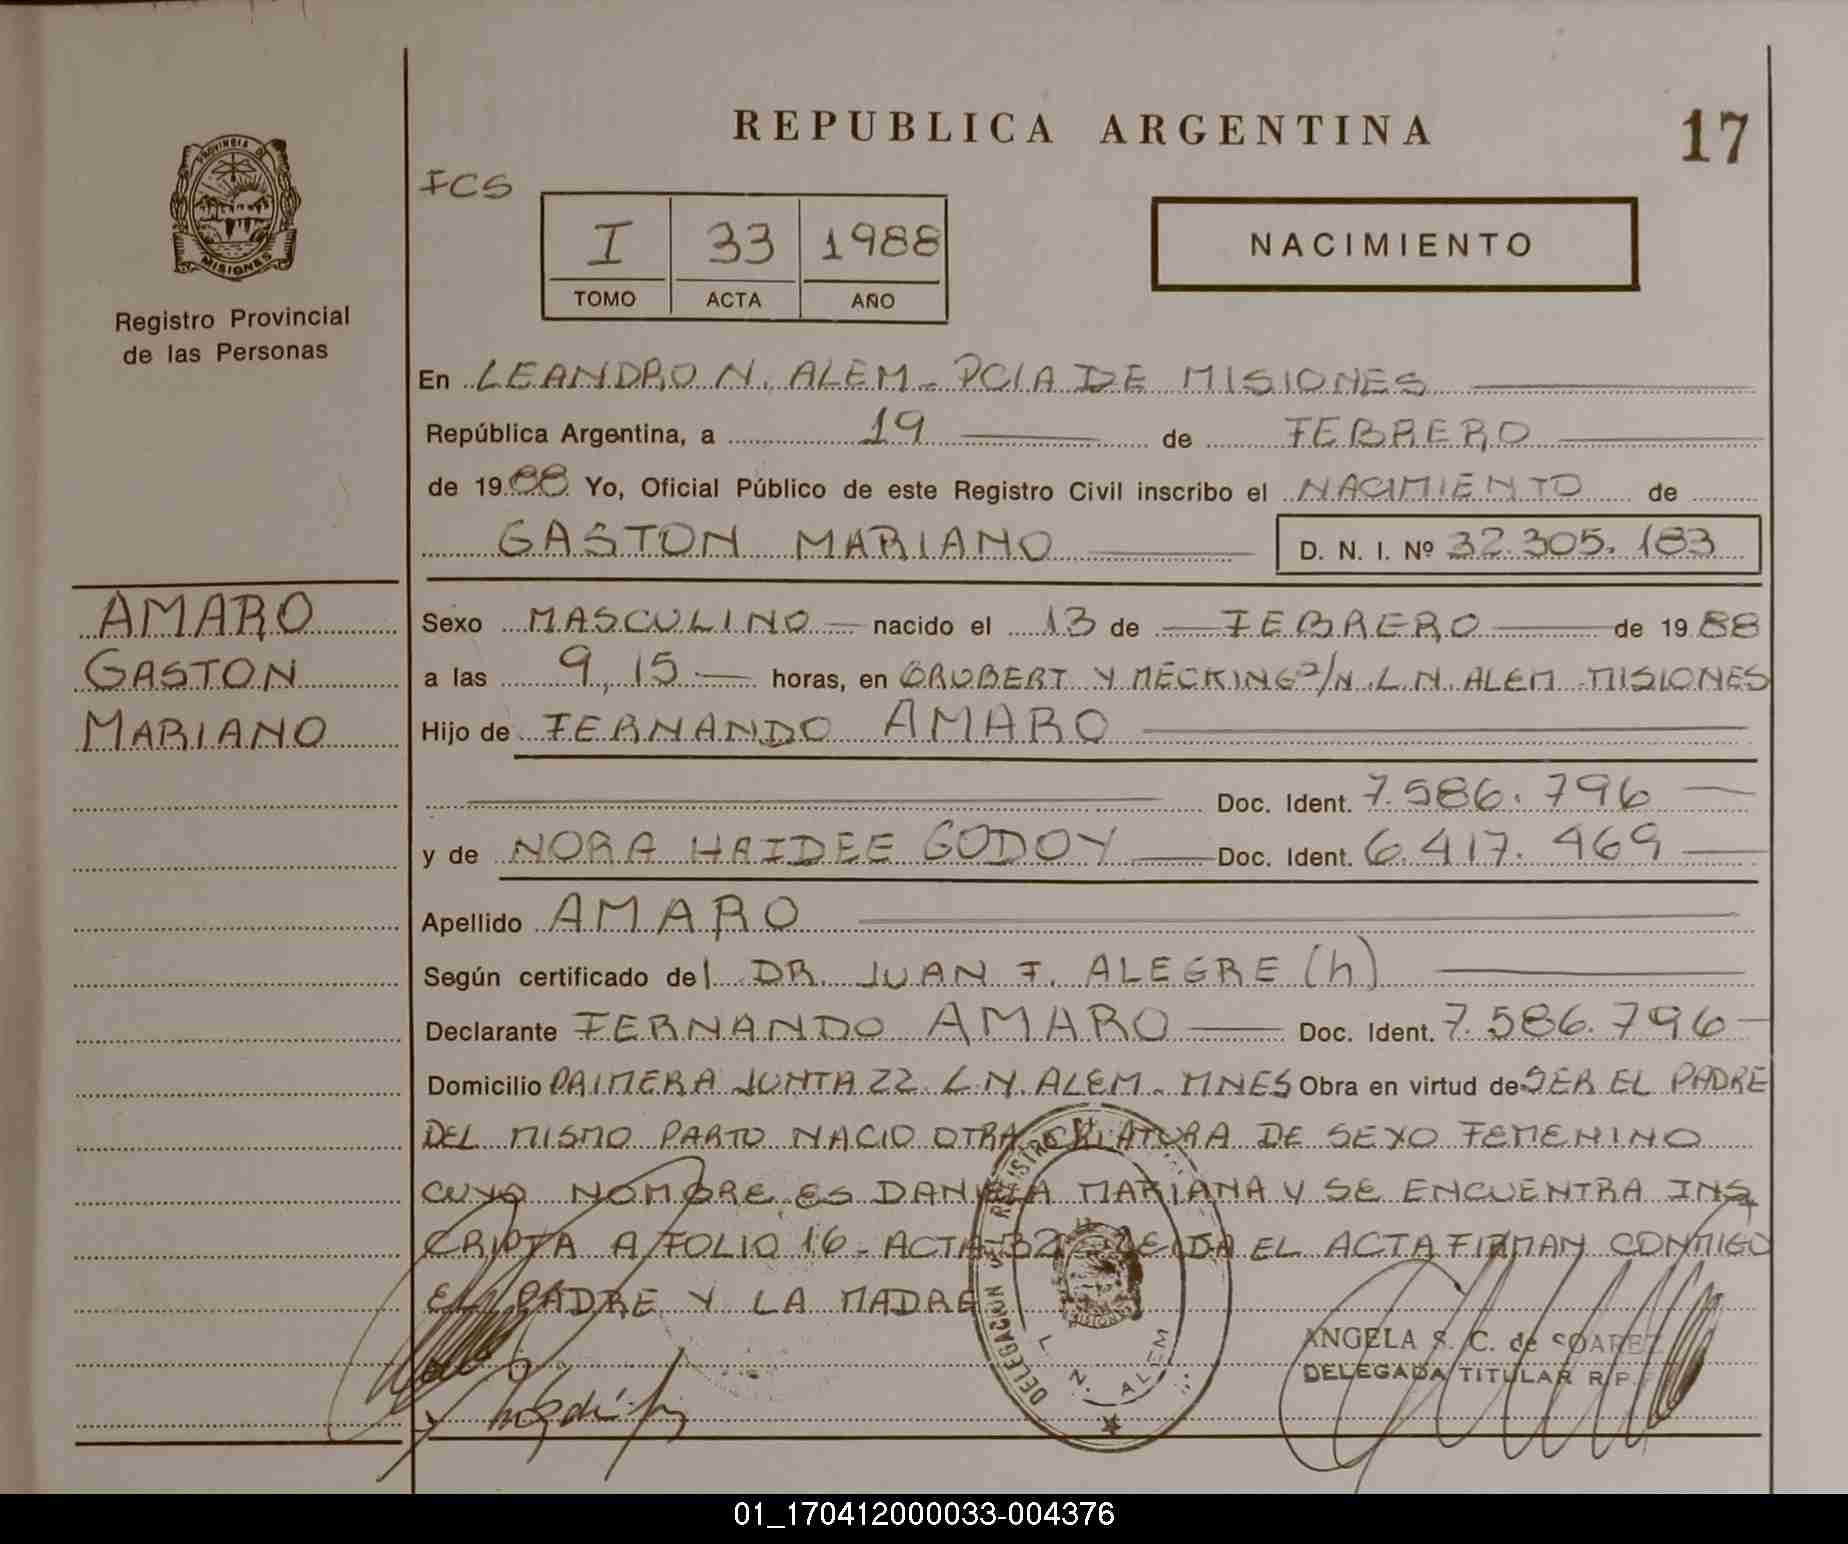 REPUBLICA ARGENTINA
17
PROVINCIA DE
MISIONES
Registro Provincial
de las Personas
FCS
I 33 1988
TOMO ACTA AÑO
NACIMIENTO
En LEANDRO N. ALEM - PCIA DE MISIONES
República Argentina, a 19 de FEBRERO
de 1988 Yo, Oficial Público de este Registro Civil inscribo el NACIMIENTO de
GASTON MARIANO D. N. I. Nº 32.305.183
AMARO
GASTON
MARIANO
Sexo MASCULINO nacido el 13 de FEBRERO de 1988
a las 9,15 horas, en GRUBERT Y MECKING S/N. L.N. ALEM MISIONES
Hijo de FERNANDO AMARO
Doc. Ident. 7.586.796
y de NORA HAIDEE GODOY Doc. Ident. 6.417.469
Apellido AMARO
Según certificado del DR. JUAN F. ALEGRE (h)
Declarante FERNANDO AMARO Doc. Ident. 7.586.796
Domicilio PRIMERA JUNTA 22 L.N. ALEM - MNES Obra en virtud de SER EL PADRE
DEL MISMO PARTO NACIO OTRA CRIATURA DE SEXO FEMENINO
CUYO NOMBRE ES DANIELA MARIANA Y SE ENCUENTRA INS
CRIPTA A FOLIO 16 - ACTA 32 - LEIDA EL ACTA FIRMAN CONMIGO
EL PADRE Y LA MADRE
DELEGACION REGISTRO
L. N. ALEM
MISIONES
ANGELA S. C. de SOAREZ
DELEGADA TITULAR R.P.
01_170412000033-004376